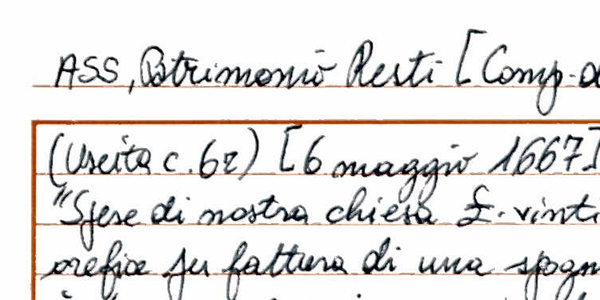 ASS, Patrimonio Resti [Comp. d
(Uscita c. 62) [6 maggio 1667]
"Spese di nostra chiesa £. vinti
orefice per fattura di una spogn